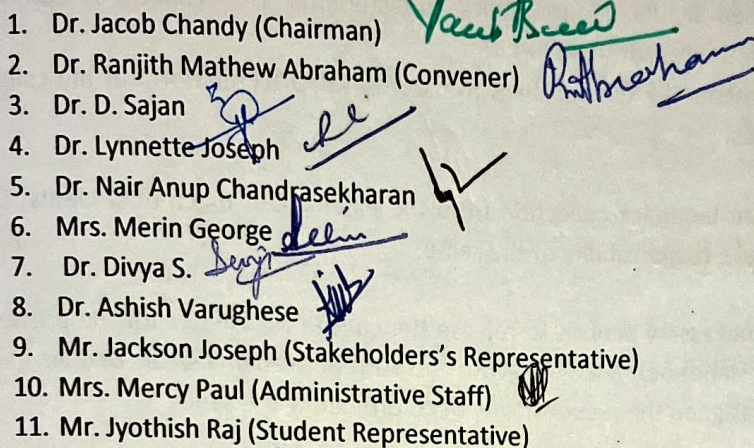 1. Dr. Jacob Chandy (Chairman)
2. Dr. Ranjith Mathew Abraham (Convener)
3. Dr. D. Sajan
4. Dr. Lynnette Joseph
5. Dr. Nair Anup Chandrasekharan
6. Mrs. Merin George
7. Dr. Divya S.
8. Dr. Ashish Varughese
9. Mr. Jackson Joseph (Stakeholders's Representative)
10. Mrs. Mercy Paul (Administrative Staff)
11. Mr. Jyothish Raj (Student Representative)